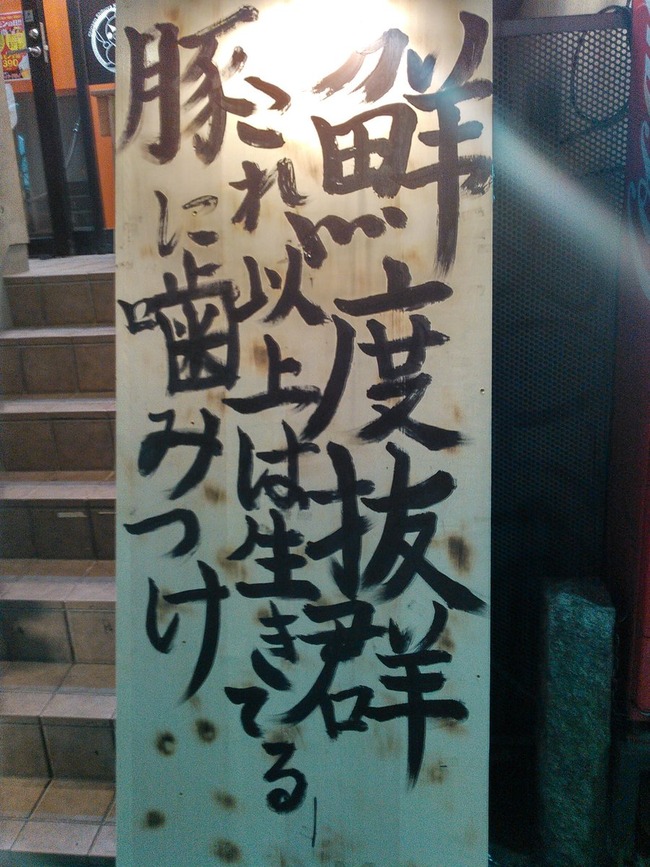 鮮度抜群
これ以上は生きてる
豚に噛みつけ
390